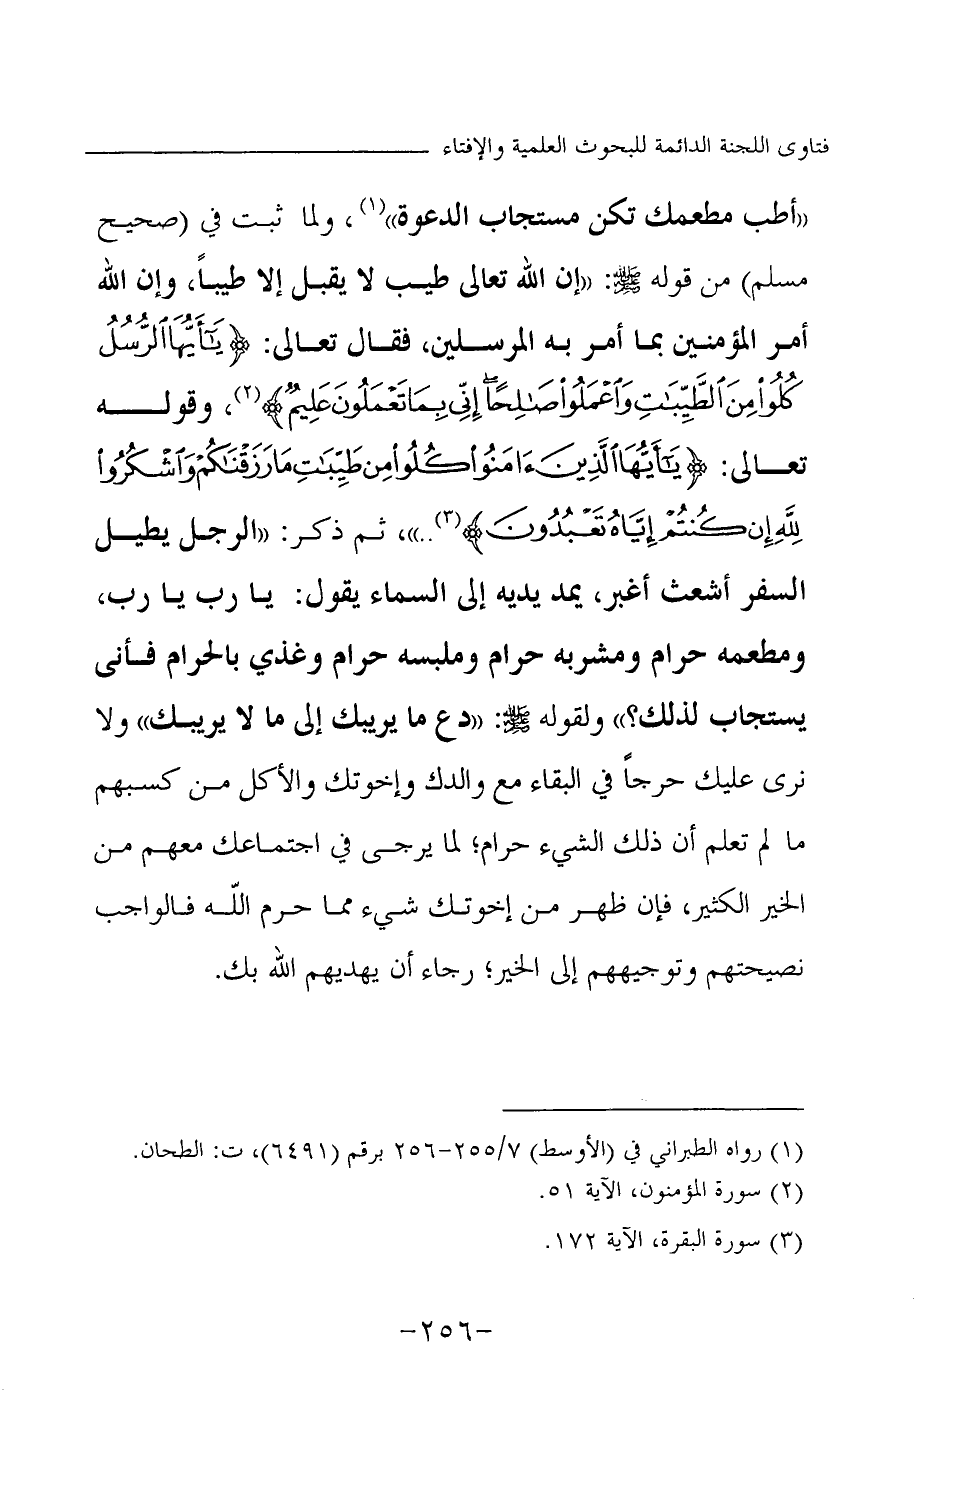 فتاوى اللجنة الدائمة للبحوث العلمية والإفتاء
«أطب مطعمك تكن مستجاب الدعوة»(١)، ولما ثبت في (صحيح
مسلم) من قوله ﷺ: «إن الله تعالى طيب لا يقبل إلا طيباً، وإن الله
أمر المؤمنين بما أمر به المرسلين، فقال تعالى: ﴿يَٰٓأَيُّهَا ٱلرُّسُلُ
كُلُوا۟ مِنَ ٱلطَّيِّبَٰتِ وَٱعْمَلُوا۟ صَٰلِحًا ۖ إِنِّى بِمَا تَعْمَلُونَ عَلِيمٌ﴾(٢)، وقوله
تعالى: ﴿يَٰٓأَيُّهَا ٱلَّذِينَ ءَامَنُوا۟ كُلُوا۟ مِن طَيِّبَٰتِ مَا رَزَقْنَٰكُمْ وَٱشْكُرُوا۟
لِلَّهِ إِن كُنتُمْ إِيَّاهُ تَعْبُدُونَ﴾(٣)..»، ثم ذكر: «الرجل يطيل
السفر أشعث أغبر، يمد يديه إلى السماء يقول: يا رب يا رب،
ومطعمه حرام ومشربه حرام وملبسه حرام وغذي بالحرام فأنى
يستجاب لذلك؟» ولقوله ﷺ: «دع ما يريبك إلى ما لا يريبك» ولا
نرى عليك حرجاً في البقاء مع والدك وإخوتك والأكل من كسبهم
ما لم تعلم أن ذلك الشيء حرام؛ لما يرجى في اجتماعك معهم من
الخير الكثير، فإن ظهر من إخوتك شيء مما حرم اللّه فالواجب
نصيحتهم وتوجيههم إلى الخير؛ رجاء أن يهديهم الله بك.
(١) رواه الطبراني في (الأوسط) ٢٥٥/٧-٢٥٦ برقم (٦٤٩١)، ت: الطحان.
(٢) سورة المؤمنون، الآية ٥١.
(٣) سورة البقرة، الآية ١٧٢.
-٢٥٦-